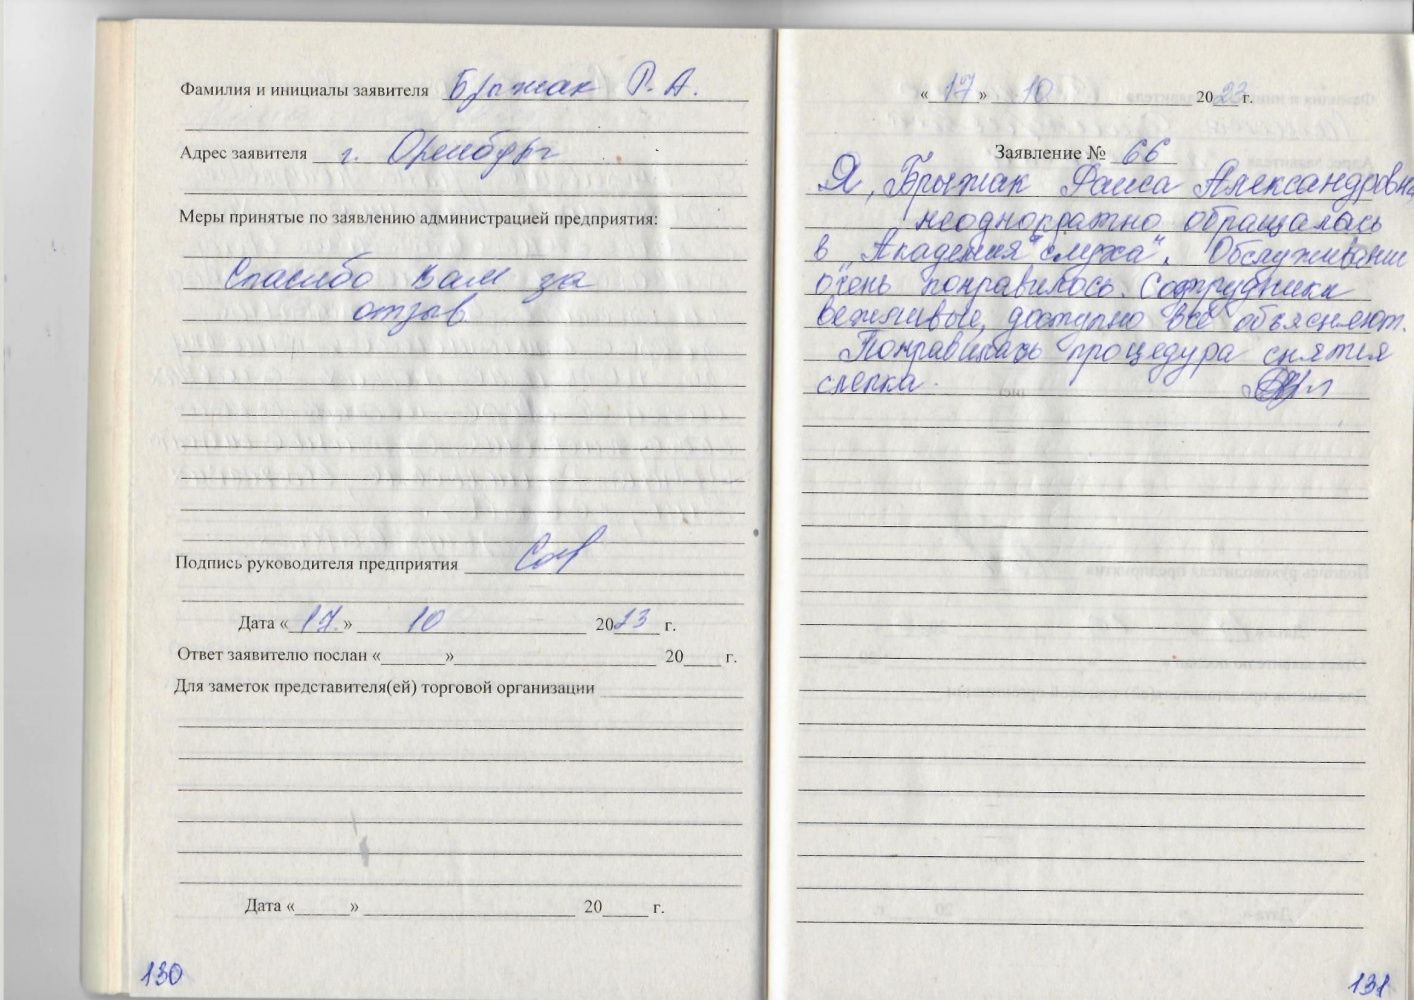 Фамилия и инициалы заявителя Брыжак Р. А.
Адрес заявителя г. Оренбург
Меры принятые по заявлению администрацией предприятия:
Спасибо Вам за
отзыв
Подпись руководителя предприятия
Дата «17» 10 2023 г.
Ответ заявителю послан «______»__________ 20____ г.
Для заметок представителя(ей) торговой организации
Дата «______» __________ 20____ г.
130
«17» 10 2023 г.
Заявление № 66
Я, Брыжак Раиса Александровна,
неоднократно обращалась
в „Академия слуха“. Обслуживание
очень понравилось. Сотрудники
вежливые, доступно всё объясняют.
Понравилась процедура снятия
слепка.
131